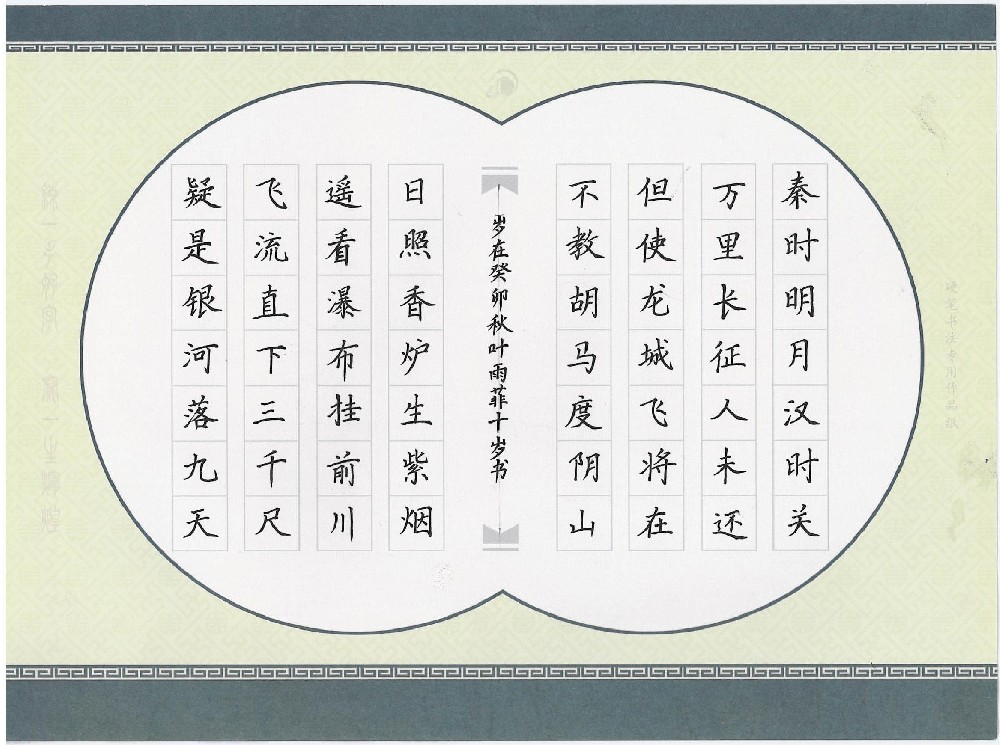 秦时明月汉时关
万里长征人未还
但使龙城飞将在
不教胡马度阴山
岁在癸卯秋叶雨菲十岁书
日照香炉生紫烟
遥看瀑布挂前川
飞流直下三千尺
疑是银河落九天
硬笔书法专用作品纸